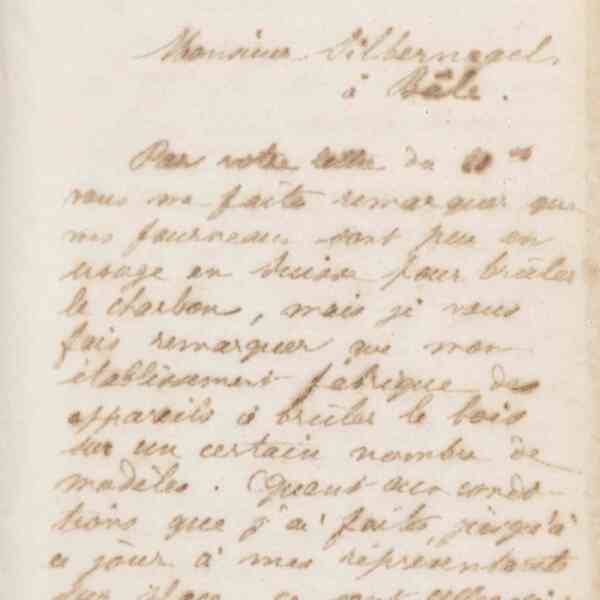 Monsieur Silbernagel
à Bâle.
Par votre lettre du
vous me faites remarquer que
mes fourneaux sont peu en
usage en Suisse pour brûler
le charbon, mais je vous
fais remarquer que mon
établissement fabrique des
appareils à brûler le bois
sur un certain nombre de
modèles. Quant aux condi-
tions que j'ai faites jusqu'à
ce jour à mes représentants
sur place, ce sont